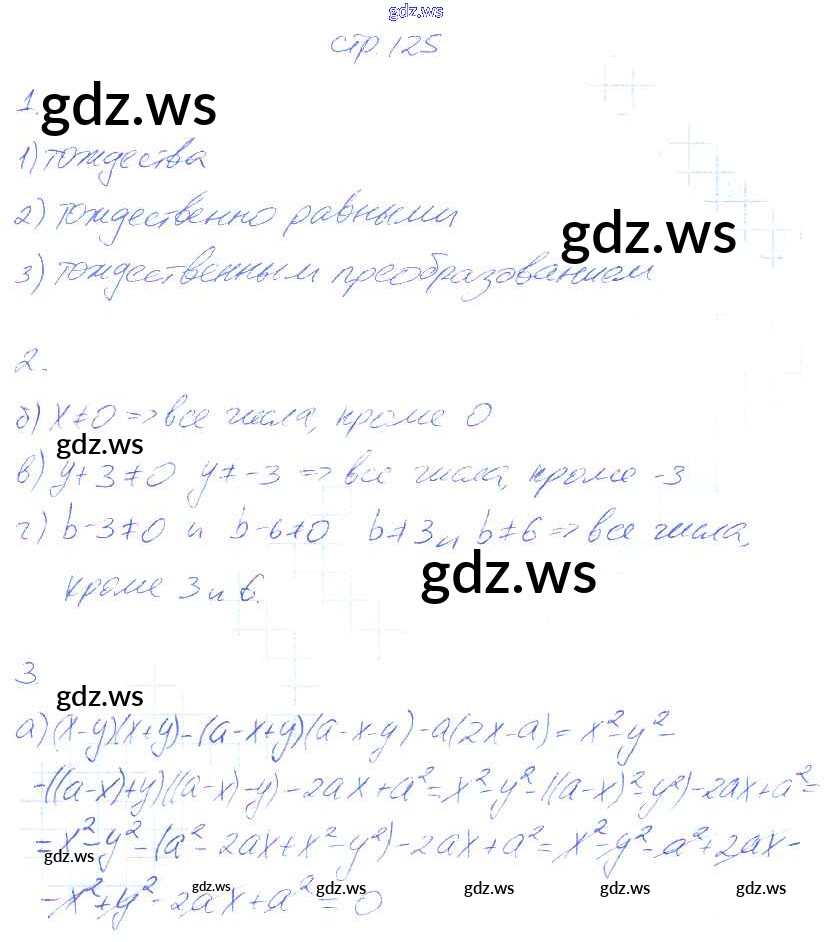 gdz.ws
стр. 125
1. gdz.ws
1) тождества
2) тождественно равными
gdz.ws
3) тождественным преобразованием
2.
б) x≠0 => все числа, кроме 0
gdz.ws
в) y+3≠0 y≠-3 => все числа, кроме -3
г) b-3≠0 и b-6≠0 b≠3 и b≠6 => все числа,
gdz.ws
кроме 3 и 6.
3.
gdz.ws
а) (x-y)(x+y)-(a-x+y)(a-x-y)-a(2x-a)=x²-y²-
-((a-x)+y)((a-x)-y)-2ax+a²=x²-y²-((a-x)²-y²)-2ax+a²=
=x²-y²-(a²-2ax+x²-y²)-2ax+a²=x²-y²-a²+2ax-
gdz.ws
-x²+y²-2ax+a²=0
gdz.ws gdz.ws gdz.ws gdz.ws